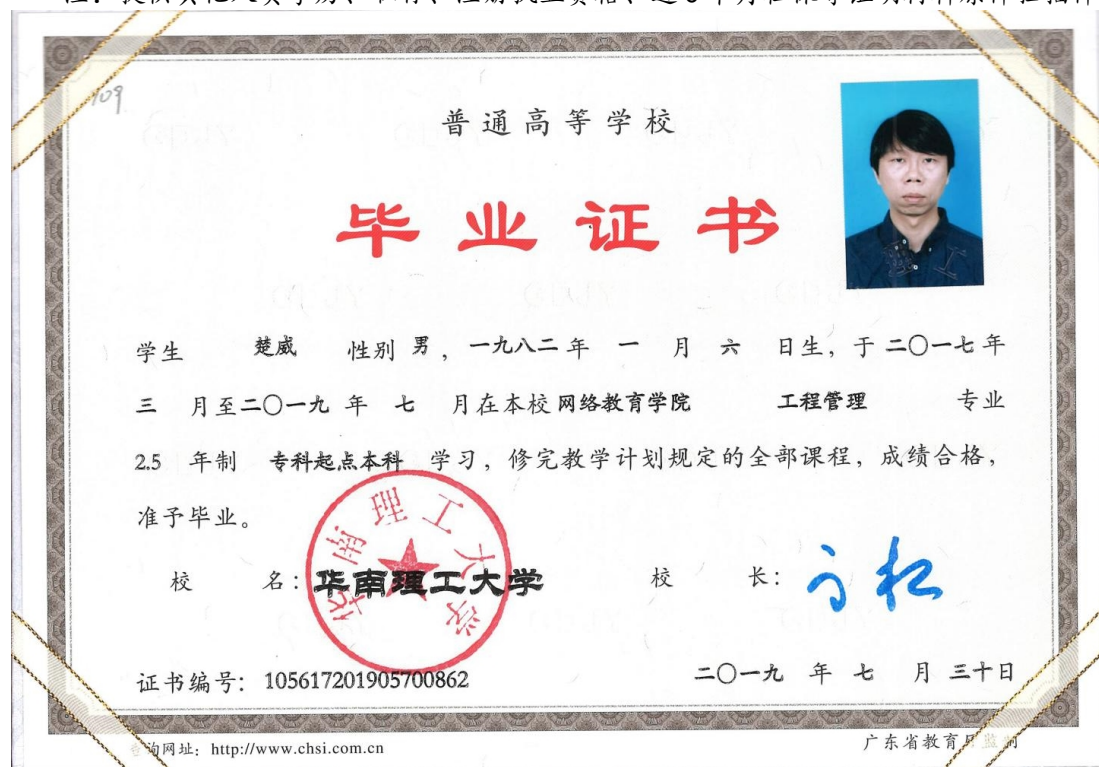 109
普通高等学校
毕业证书
学生 楚威 性别 男，一九八二年 一 月 六 日生，于二〇一七年
三 月至二〇一九 年 七 月在本校 网络教育学院 工程管理 专业
2.5 年制 专科起点本科 学习，修完教学计划规定的全部课程，成绩合格，
准予毕业。
校 名：华南理工大学 校 长：
华南理工大学
证书编号：105617201905700862 二〇一九 年 七 月 三十日
询网址：http://www.chsi.com.cn 广东省教育厅监制